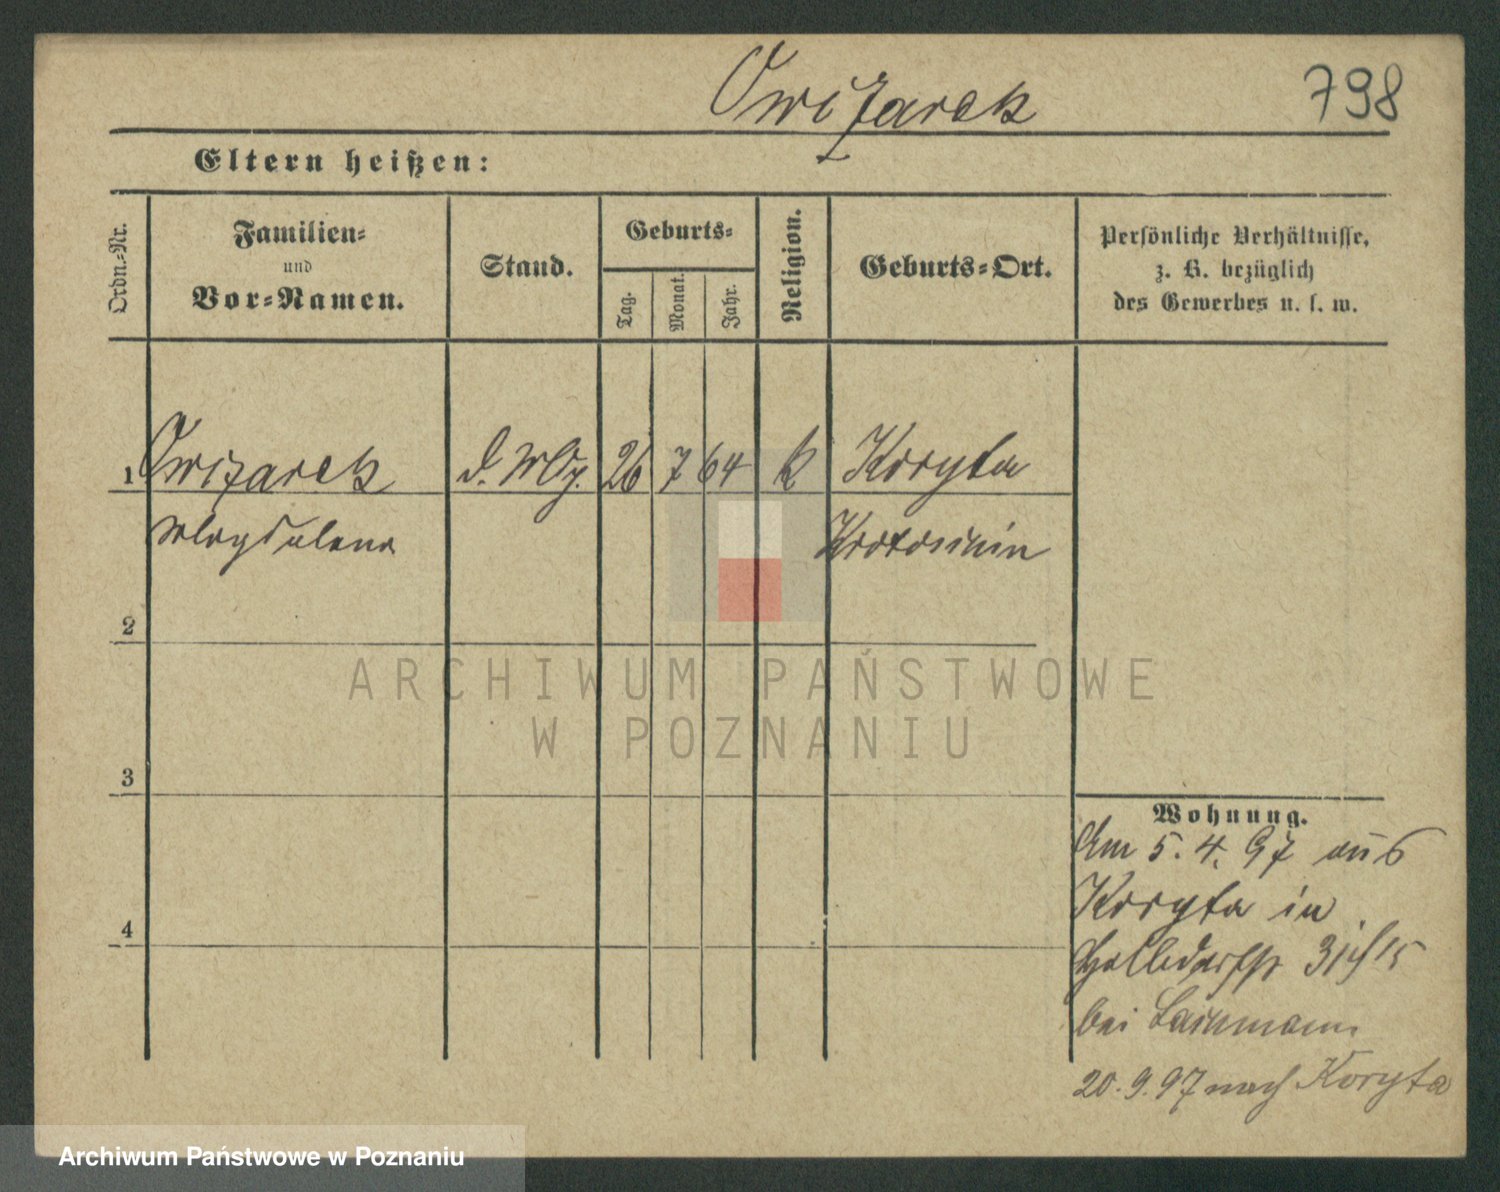 Owizarek
798
Eltern heißen:
Ordn.-Nr.
Familien-
und
Vor-Namen.
Stand.
Geburts-
Tag.
Monat.
Jahr.
Religion.
Geburts-Ort.
Persönliche Verhältnisse,
z. B. bezüglich
des Gewerbes u. s. w.
1 Owizarek d. 26 7 64 k Koryta
Magdalena Krotoschin
2
3
4
Wohnung.
Am 5. 4. 97 aus
Koryta in
Halbdorfstr 15
bei Lachmann
20.9.97 nach Koryta
ARCHIWUM PAŃSTWOWE
W POZNANIU
Archiwum Państwowe w Poznaniu